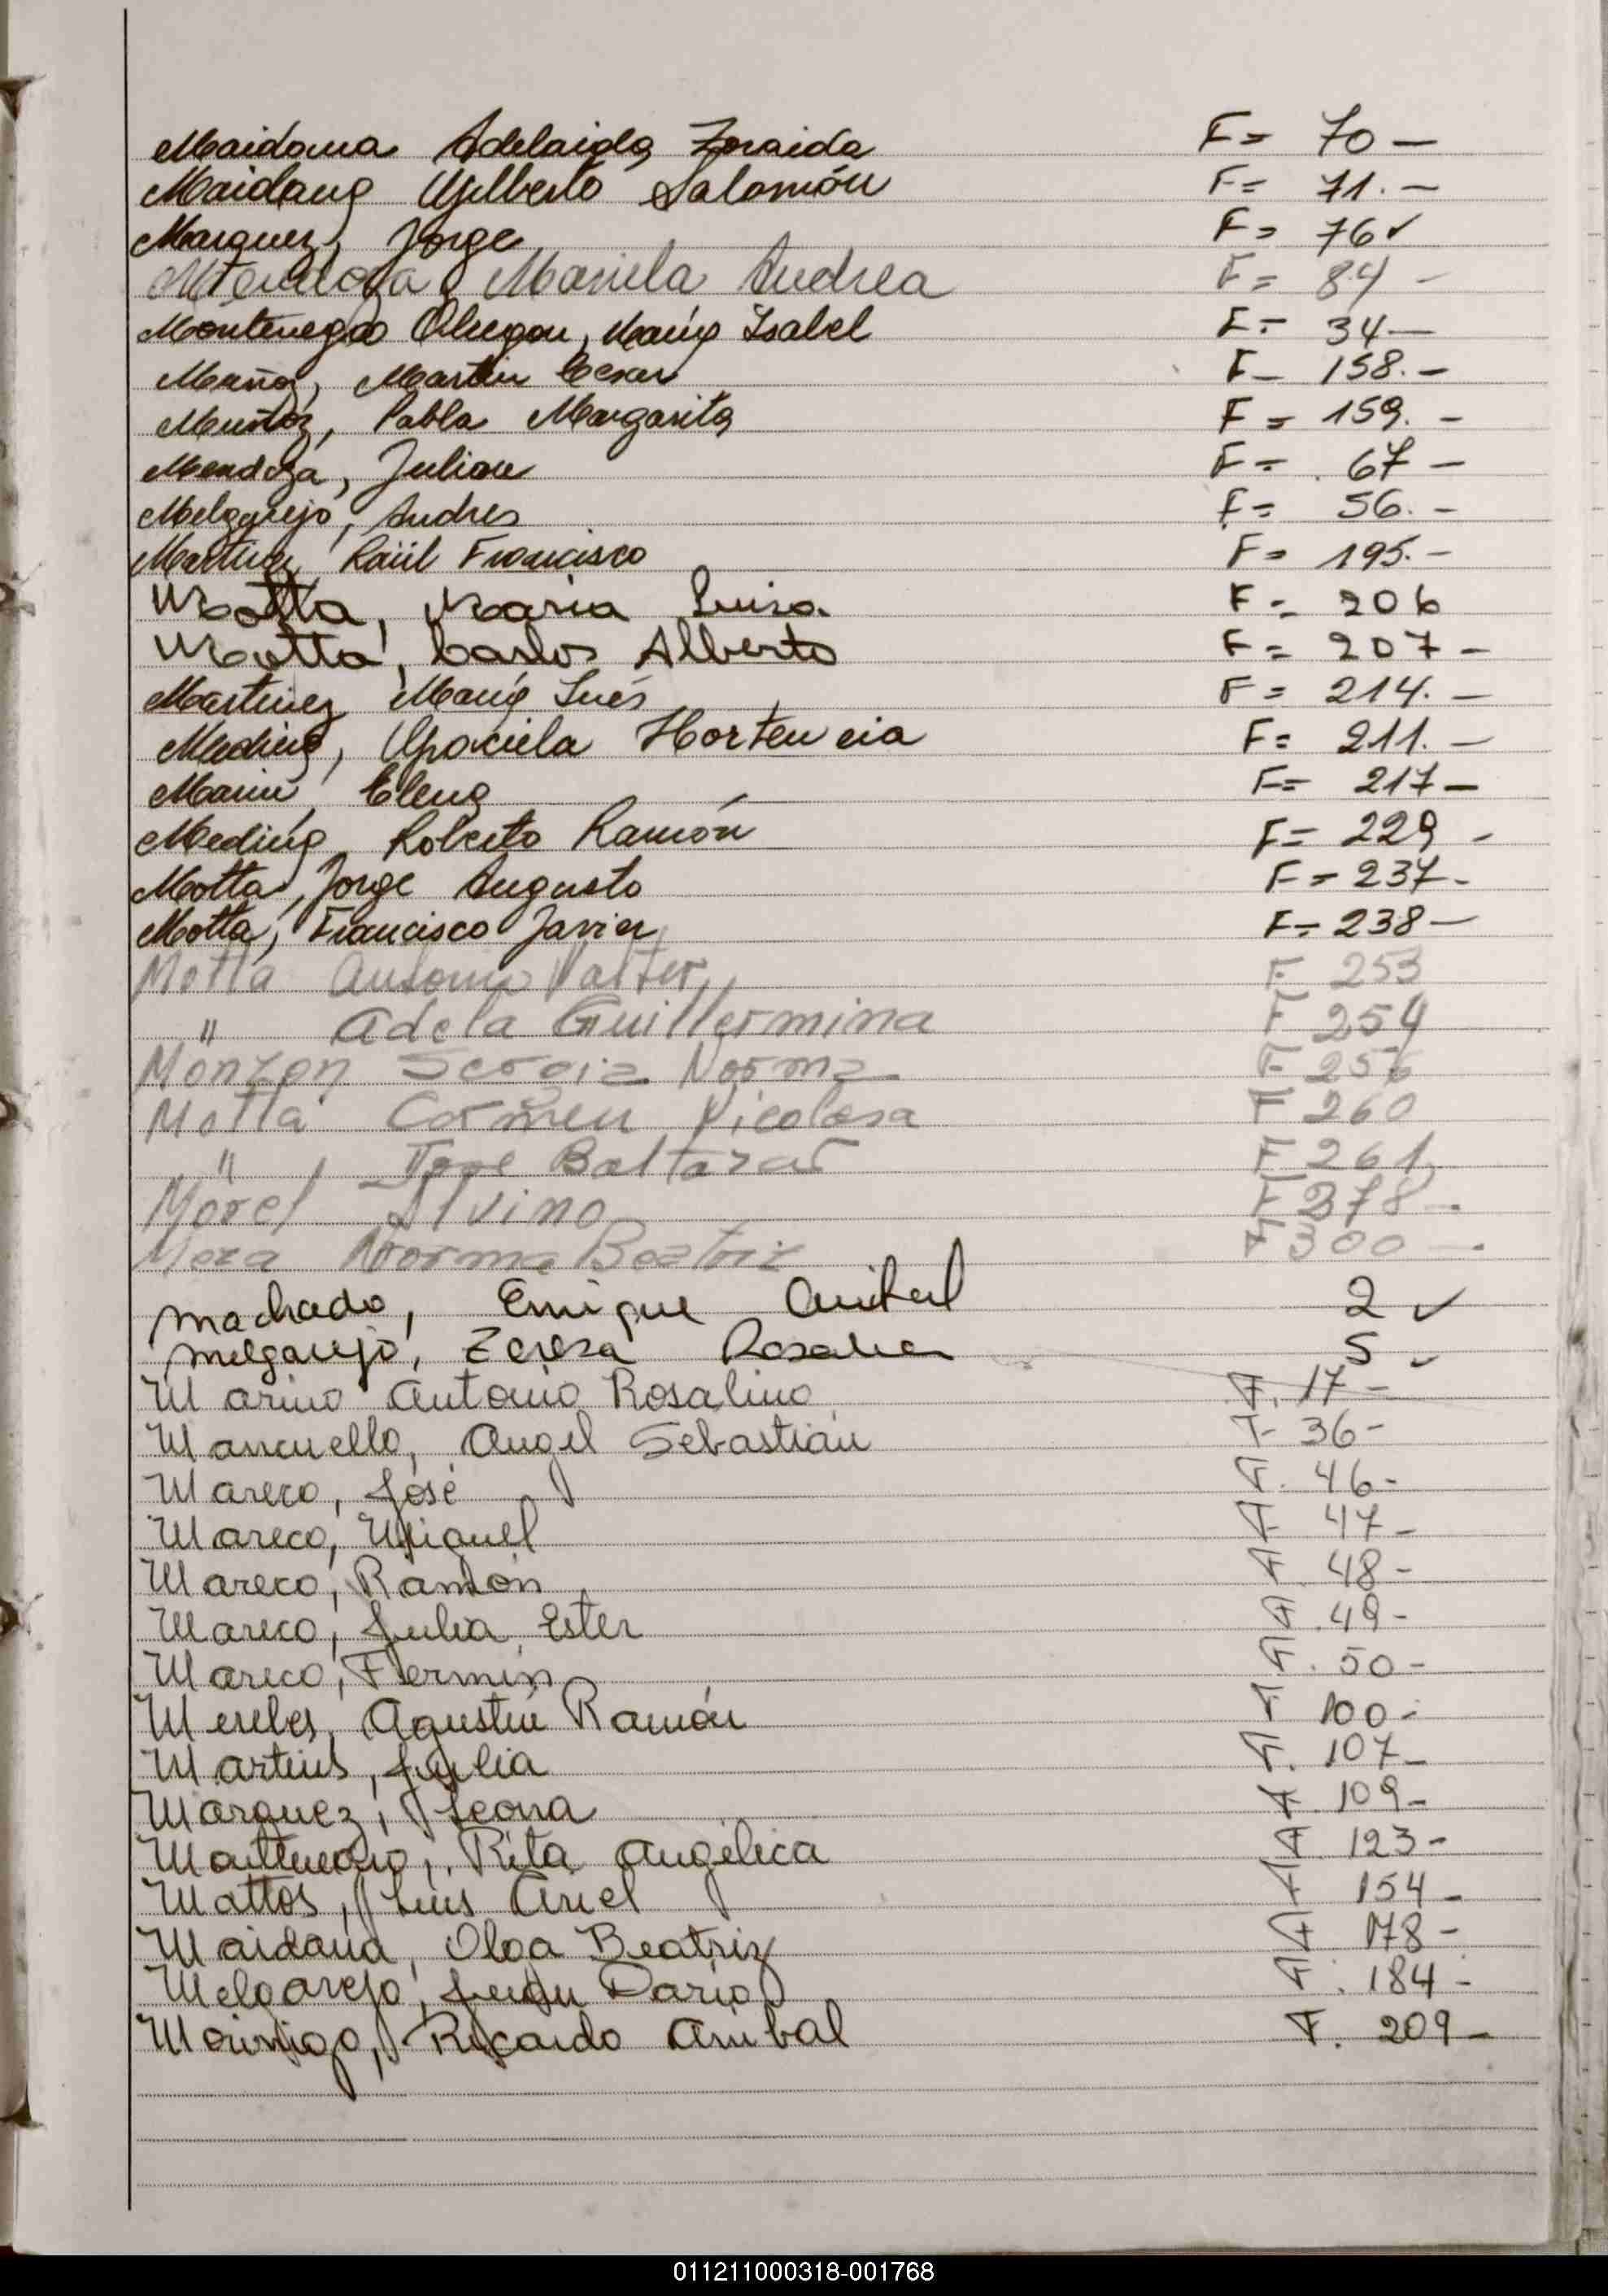 Maidana Adelaida Zoraida F= 70 —
Maidana Gilberto Salomón F= 71. —
Marquez, Jorge F= 76 ✓
Mendoza, Mariela Andrea F= 84 -
Montenegro Obregon, María Isabel F= 34 —
Muñoz, Martin Cesar F- 158. -
Muñoz, Pabla Margarita F= 159. -
Mendoza, Julian F= 67 -
Melgarejo, Andres F= 56. -
Martinez Raúl Francisco F= 195. -
Motta, Maria Luisa F= 206
Motta, Carlos Alberto F= 207 -
Martinez María Inés F= 214. —
Medina, Graciela Hortencia F= 211. —
Marin Elena F= 217 -
Medina, Roberto Ramón F= 229 -
Motta, Jorge Augusto F= 237 -
Motta, Francisco Javier F= 238 —
Motta Antonio Valter F 253
" Adela Guillermina F 254
Monzon Sergia Norma F 256
Motta Carmen Nicolasa F 260
" Jose Baltazar F 261
Morel Alvino F 278 -
Meza Norma Beatriz F 300 —
Machado, Enrique Anibal 2 ✓
Melgarejo, Teresa Rosalia 5 ✓
Marino Antonio Rosalino F. 17 -
Mancuello, Angel Sebastián F- 36 -
Mareco, José F. 46 -
Mareco, Miguel F 47 -
Mareco, Ramón F 48 -
Mareco, Julia Ester F. 49 -
Mareco, Fermín F. 50 -
Mereles, Agustín Ramón F 100 -
Martins, Julia F. 107 -
Marquez, Leona F. 109 -
Rita Angélica F. 123 -
Mattos, Luis Ariel F 154 -
Maidana, Olga Beatriz F 178 -
Melgarejo, Juan Dario F. 184 -
Morinigo, Ricardo Anibal F. 209 -
011211000318-001768